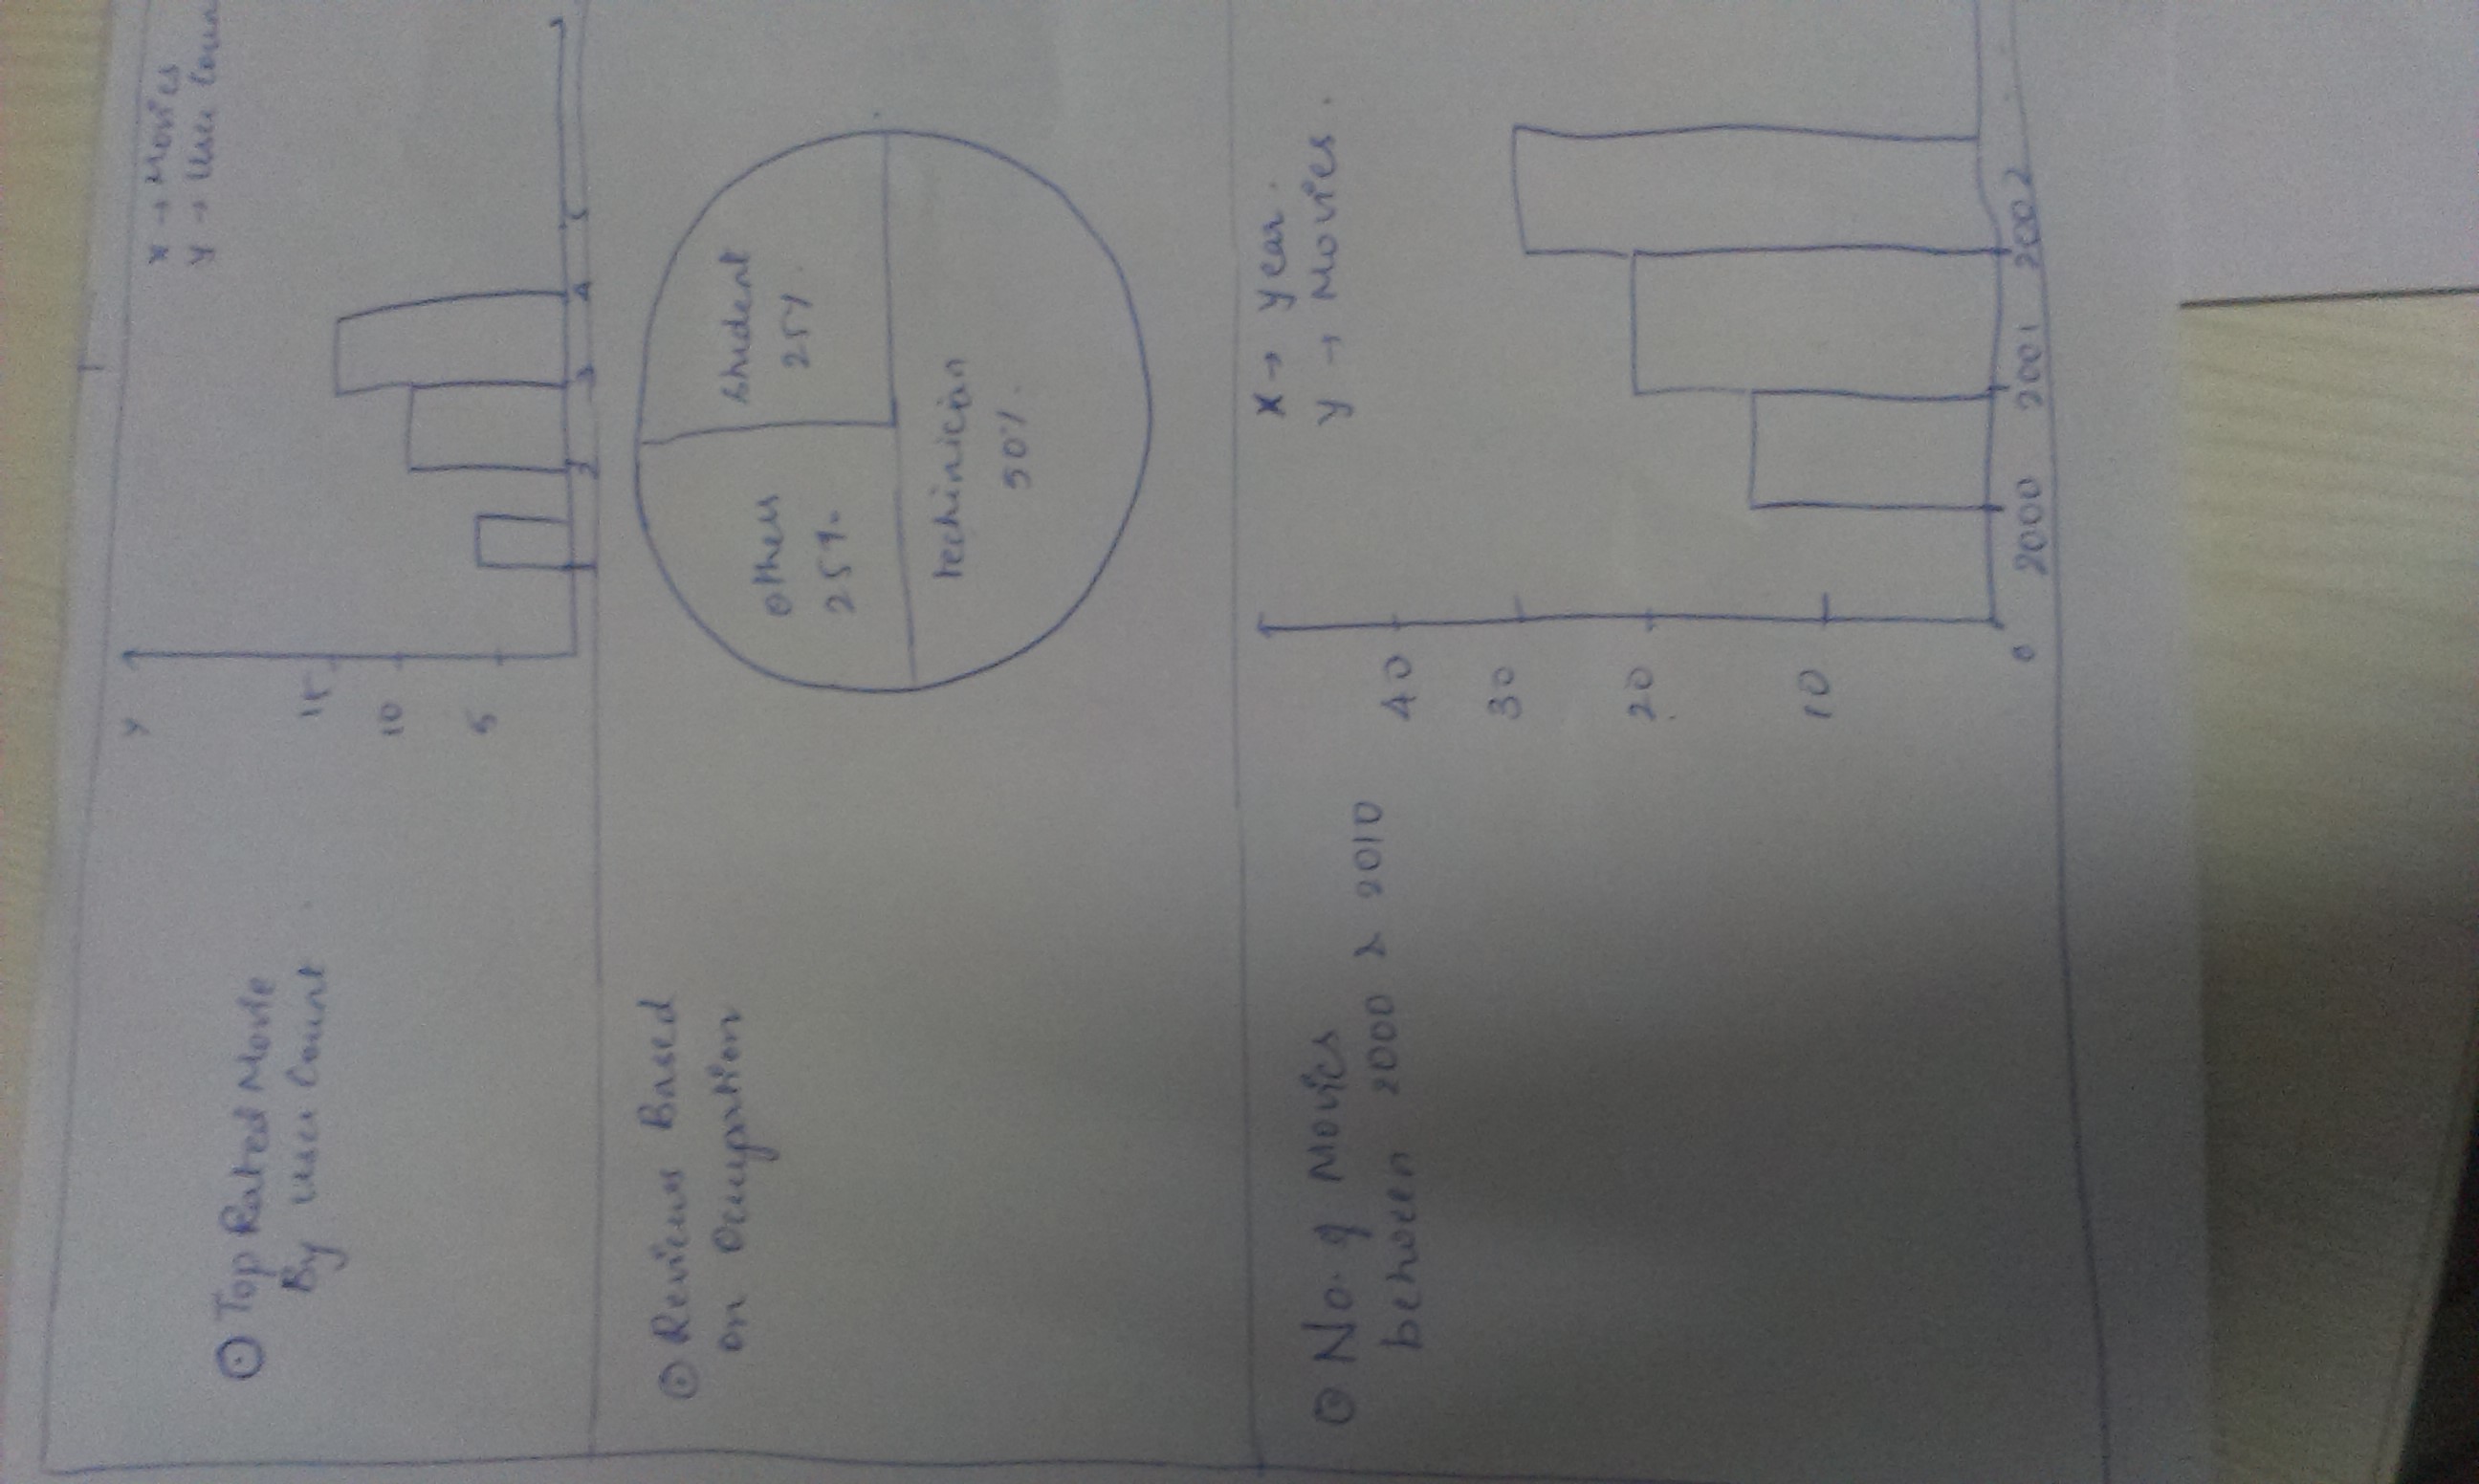 Top Rated Movie
By user Count
Y
15
10
5
2
3
4
5
x → Movies
y → User Coun
Reviews Based
on Occupation
others
25%
student
25%
techinician
50%
No. of Movies
between 2000 & 2010
x → year.
y → Movies.
40
30
20
10
0
2000 2001 2002